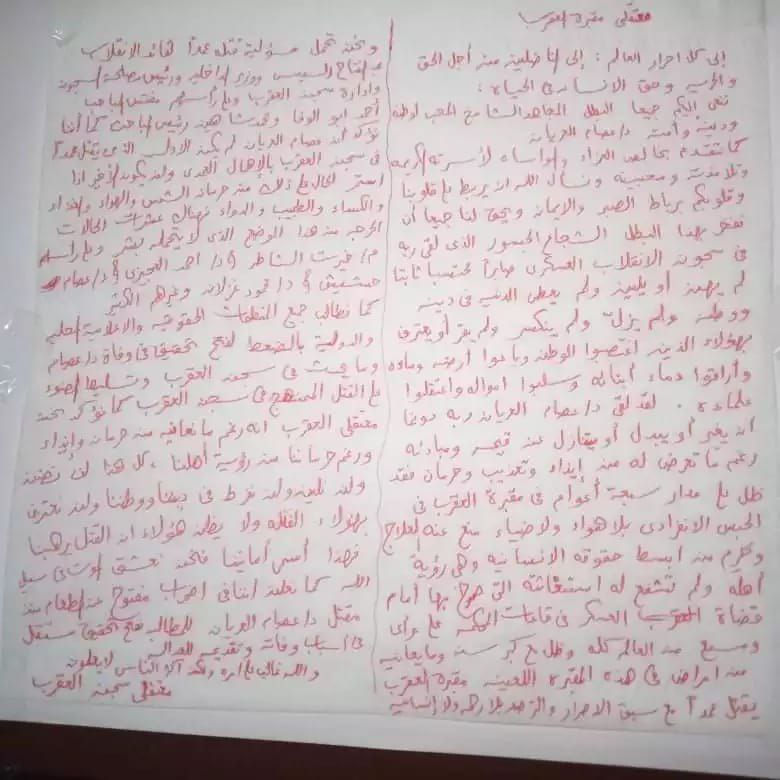 معتقلى مقبرة العقرب
إلى كل احرار العالم : إلى المناضلين من أجل الحق
والحرية وحق الانسان فى الحياة :
ننعى اليكم جميعا البطل المجاهد الشامخ المحب لوطنه
ودينه وأمته د/عصام العريان
كما نتقدم بخالص العزاء والمواساه لأسرته الكريمه
وتلامذته ومحبيه ونسأل الله ان يربط على قلوبنا
وقلوبكم برباط الصبر والايمان ويحق لنا جميعا أن
نفخر بهذا البطل الشجاع الجسور الذى لقى ربه
فى سجون الانقلاب العسكرى صابراً محتسبا ثابتا
لم يهن أو يلين ولم يعطى الدنيه فى دينه
ووطنه ولم يزل ولم ينكسر ولم يقر أو يعترف
بهؤلاء الذين اغتصبوا الوطن وباعوا أرضه وماءه
وأراقوا دماء أبنائه وسلبوا امواله واعتقلوا
علماءه . لقد لقى د/عصام العريان ربه دونما
ان يغير أو يبدل أو يتنازل عن قيمه ومبادئه
رغم ما تعرض له من إيذاء وتعذيب وحرمان فقد
ظل على مدار سبعة أعوام فى مقبرة العقرب فى
الحبس الانفرادى بلا هواء ولا ضياء منع عنه العلاج
وحرم من ابسط حقوقه الانسانيه وهى رؤية
أهله ولم تشفع له استغاثته التى صرخ بها أمام
قضاة العسكر فى قاعات المحكمه على مرأى
ومسمع من العالم كله وظل مع كبر سنه وما يعانيه
من امراض فى هذه المقبره اللعينه مقبرة العقرب
يقتل عمداً مع سبق الاصرار والترصد بلا رحمه ولا إنسانيه
ونحن نحمل مسؤلية قتله عمداً لقائد الانقلاب
عبد الفتاح السيسى ووزير الداخليه ورئيس مصلحة السجون
وادارة سجن العقرب وعلى رأسهم مفتش المباحث
أحمد ابو الوفا ومحمد شاهين رئيس المباحث كما أننا
نؤكد أن عصام العريان لم يكن الاول الذى يقتل عمداً
فى سجن العقرب بالإهمال العمدى ولن يكون الأخير اذا
استمر الحال على ذلك من حرمان الشمس والهواء والغذاء
والكساء والطبيب والدواء فهناك عشرات الحالات
الحرجه من هذا الوضع الذى لا يتحمله بشر وعلى رأسهم
م/ خيرت الشاطر و د/ احمد العجيزى و د/ عصام
حشيش و د/ محمود غزلان وغيرهم الكثير
كما نطالب جميع المنظمات الحقوقيه والاعلامية المحليه
والدولية بالضغط لفتح تحقيق فى وفاة د/عصام
وما يحدث فى سجن العقرب وتسليط الضوء
على القتل الممنهج فى سجن العقرب كما نؤكد نحن
معتقلى العقرب انه رغم ما نعانيه من حرمان وإيذاء
ورغم حرماننا من رؤية أهلنا ، كل هذا لن يضعفنا
ولن نلين ولن نفرط فى ديننا ووطننا ولن نعترف
بهؤلاء القتله ولا يظن هؤلاء ان القتل يرهبنا
فهذا أسمى أمانينا فنحن نعشق الموت فى سبيل
الله كما نعلن اننا فى اضراب مفتوح عن الطعام منذ
مقتل د/عصام العريان للمطالبه بفتح تحقيق مستقل
فى أسباب وفاته وتقديمه للعداله
والله غالب على امره ولكن اكثر الناس لا يعلمون
معتقلى سجن العقرب